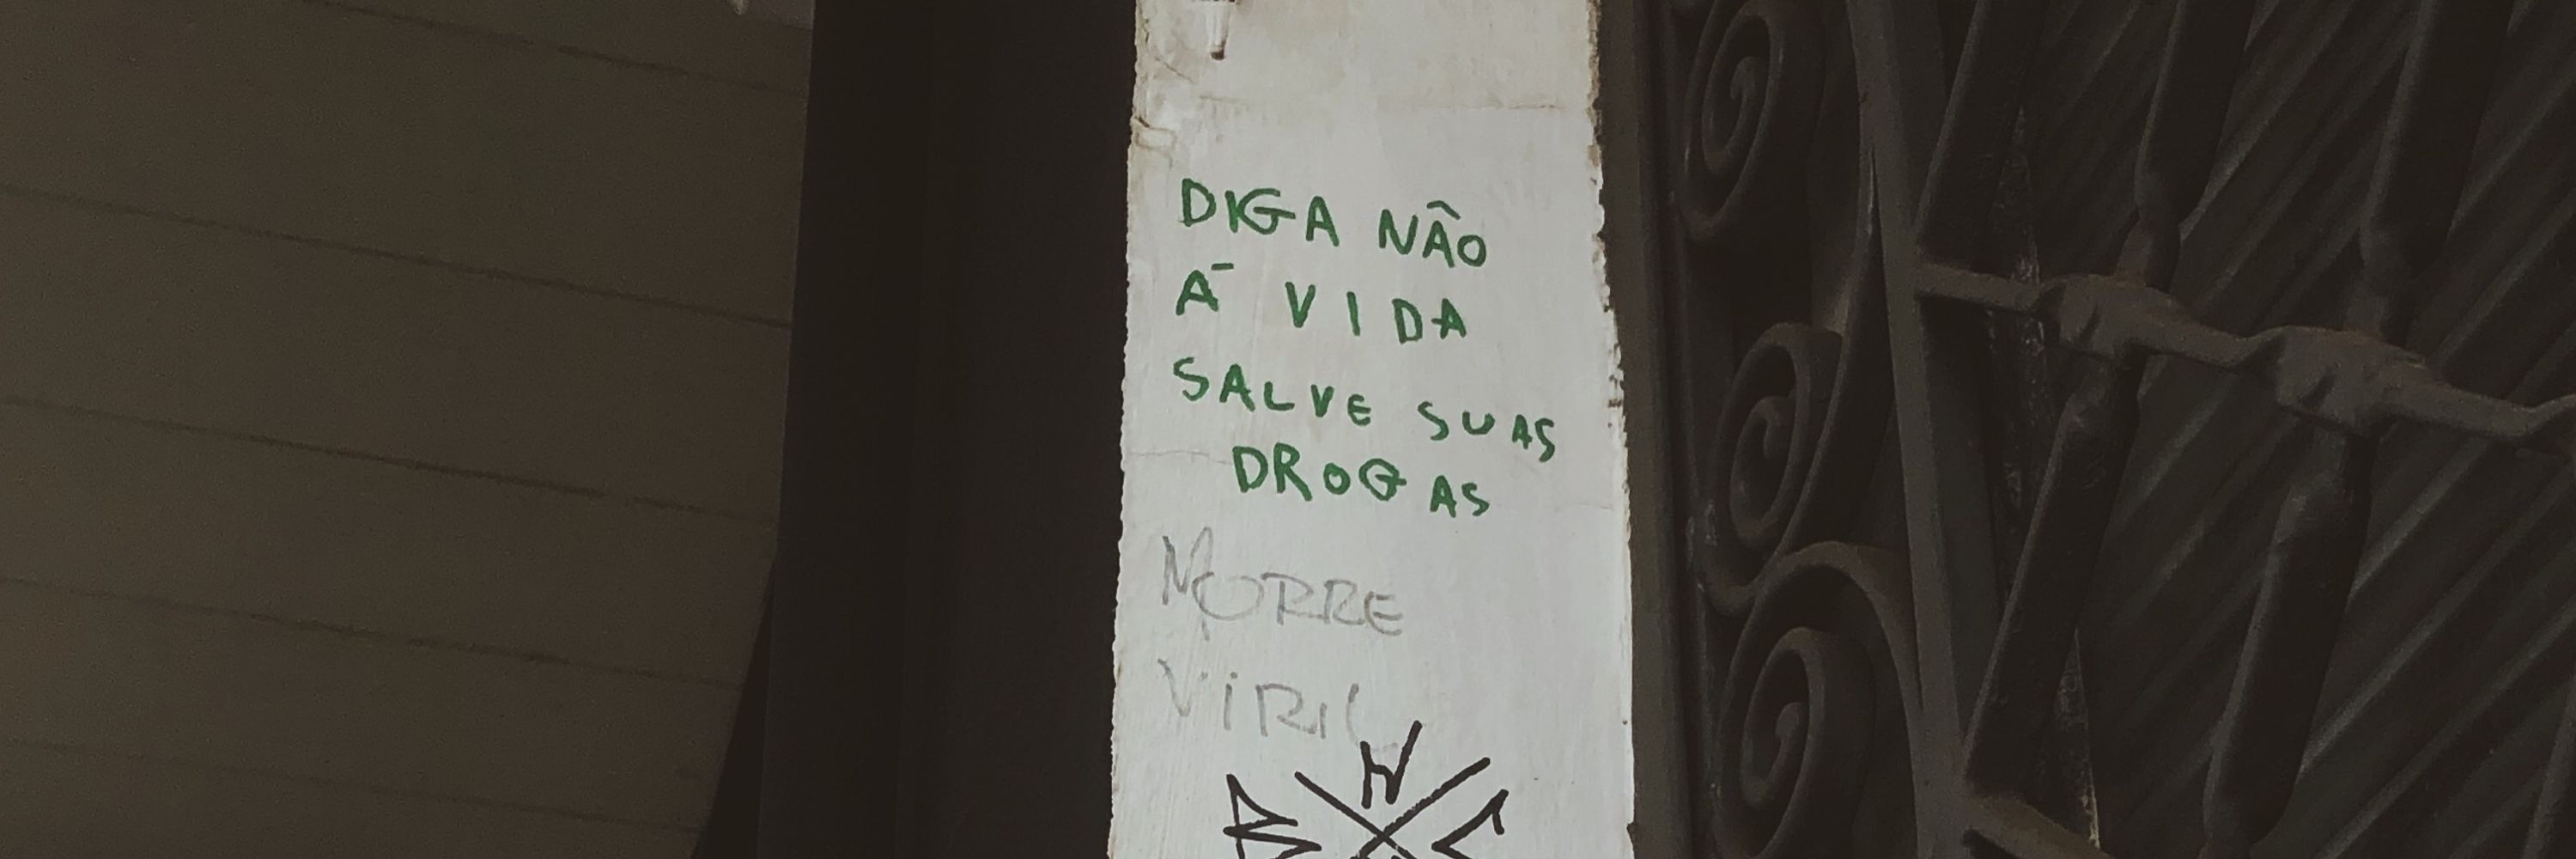 DIGA NÂO
Á VIDA
SALVE SUAS
DROGAS
MORRE
VIRIL